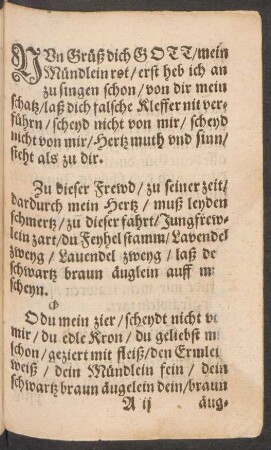 NVn Grüß dich GOTT/mein
Mündlein rot/erst heb ich an
zu singen schon/von dir mein
schatz/laß dich falsche Kleffer nit ver-
führn/scheyd nicht von mir/scheyd
nicht von mir/Hertz muth vnd sinn/
steht als zu dir.
Zu dieser Frewd/zu seiner zeit/
dardurch mein Hertz/muß leyden
schmertz/zu dieser fahrt/Jungfrew-
lein zart/du Feyhel stamm/Lavendel
zweyg/Lauendel zweyg/laß de
schwartz braun äuglein auff m
scheyn.
O du mein zier/scheydt nicht v
mir/du edle Kron/du geliebst m
schon/geziert mit fleiß/den Ermlei
weiß/dein Mündlein fein/dein
schwartz braun äugelein dein/braun
A ij äug-